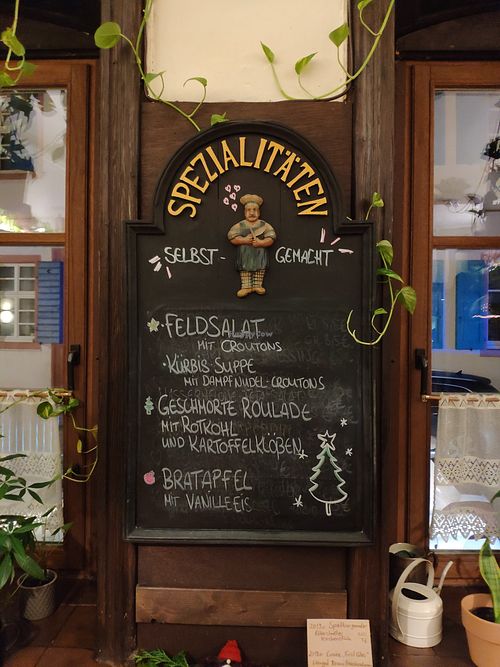 SPEZIALITÄTEN
SELBST-GEMACHT
FELDSALAT
MIT CROUTONS
KÜRBIS SUPPE
MIT DAMPFNUDEL-CROUTONS
GESCHMORTE ROULADE
MIT ROTKOHL
UND KARTOFFELKLÖßEN
BRATAPFEL
MIT VANILLEEIS
HappyCow